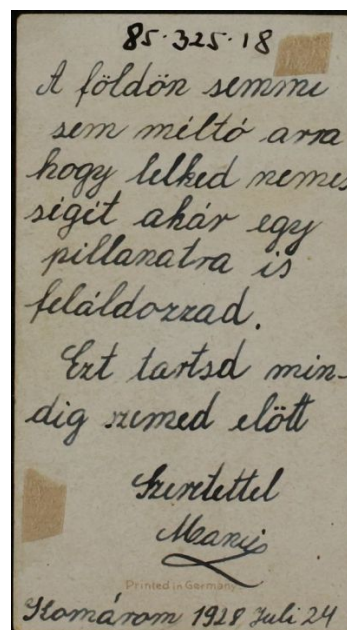 85.325.18
A földön semmi
sem méltó arra
hogy lelked nemes
ségit akár egy
pillanatra is
feláldozzad.
Ezt tartsd min-
dig szemed előtt
Szeretettel
Printed in Germany
Komárom 1928 Juli 24